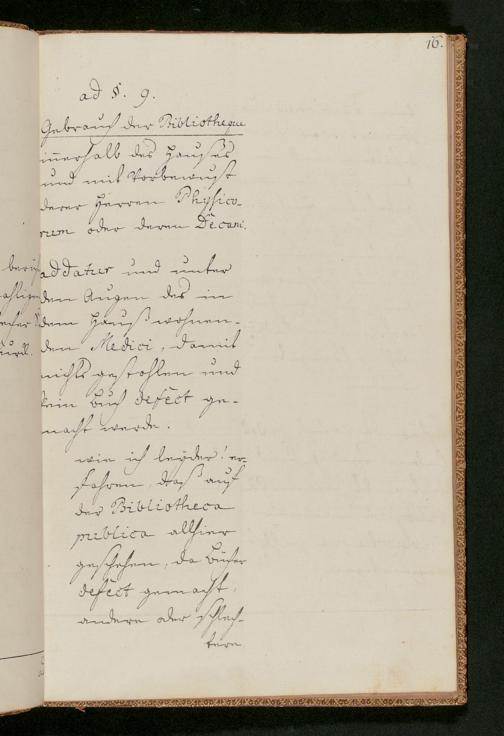 16.
ad §. 9.
Gebrauch der Bibliotheque
innerhalb des Hauses
und mit Vorbewust
derer Herren Physico-
rum oder deren Decani.
addatur und unter
den Augen des in
dem Hauß wohnen-
den Medici, damit
nichts gestohlen und
kein Buch defect ge-
macht werde.
wie ich leyder! er-
fahren, daß auf
der Bibliotheca
publica allhier
geschehen, da Bücher
defect gemacht,
andere oder schlech-
tere